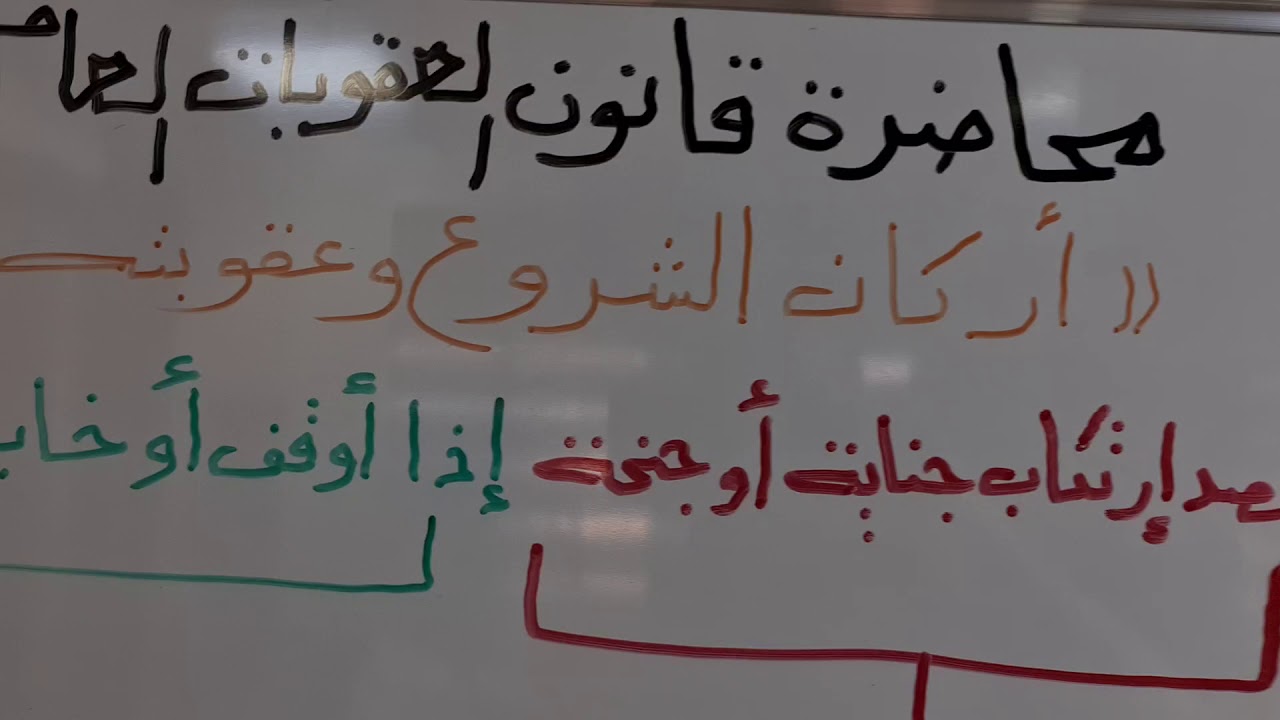 محاضرة قانون العقوبات العام
(( أركان الشروع وعقوبته
إرتكاب جناية أو جنحة إذا أوقف أو